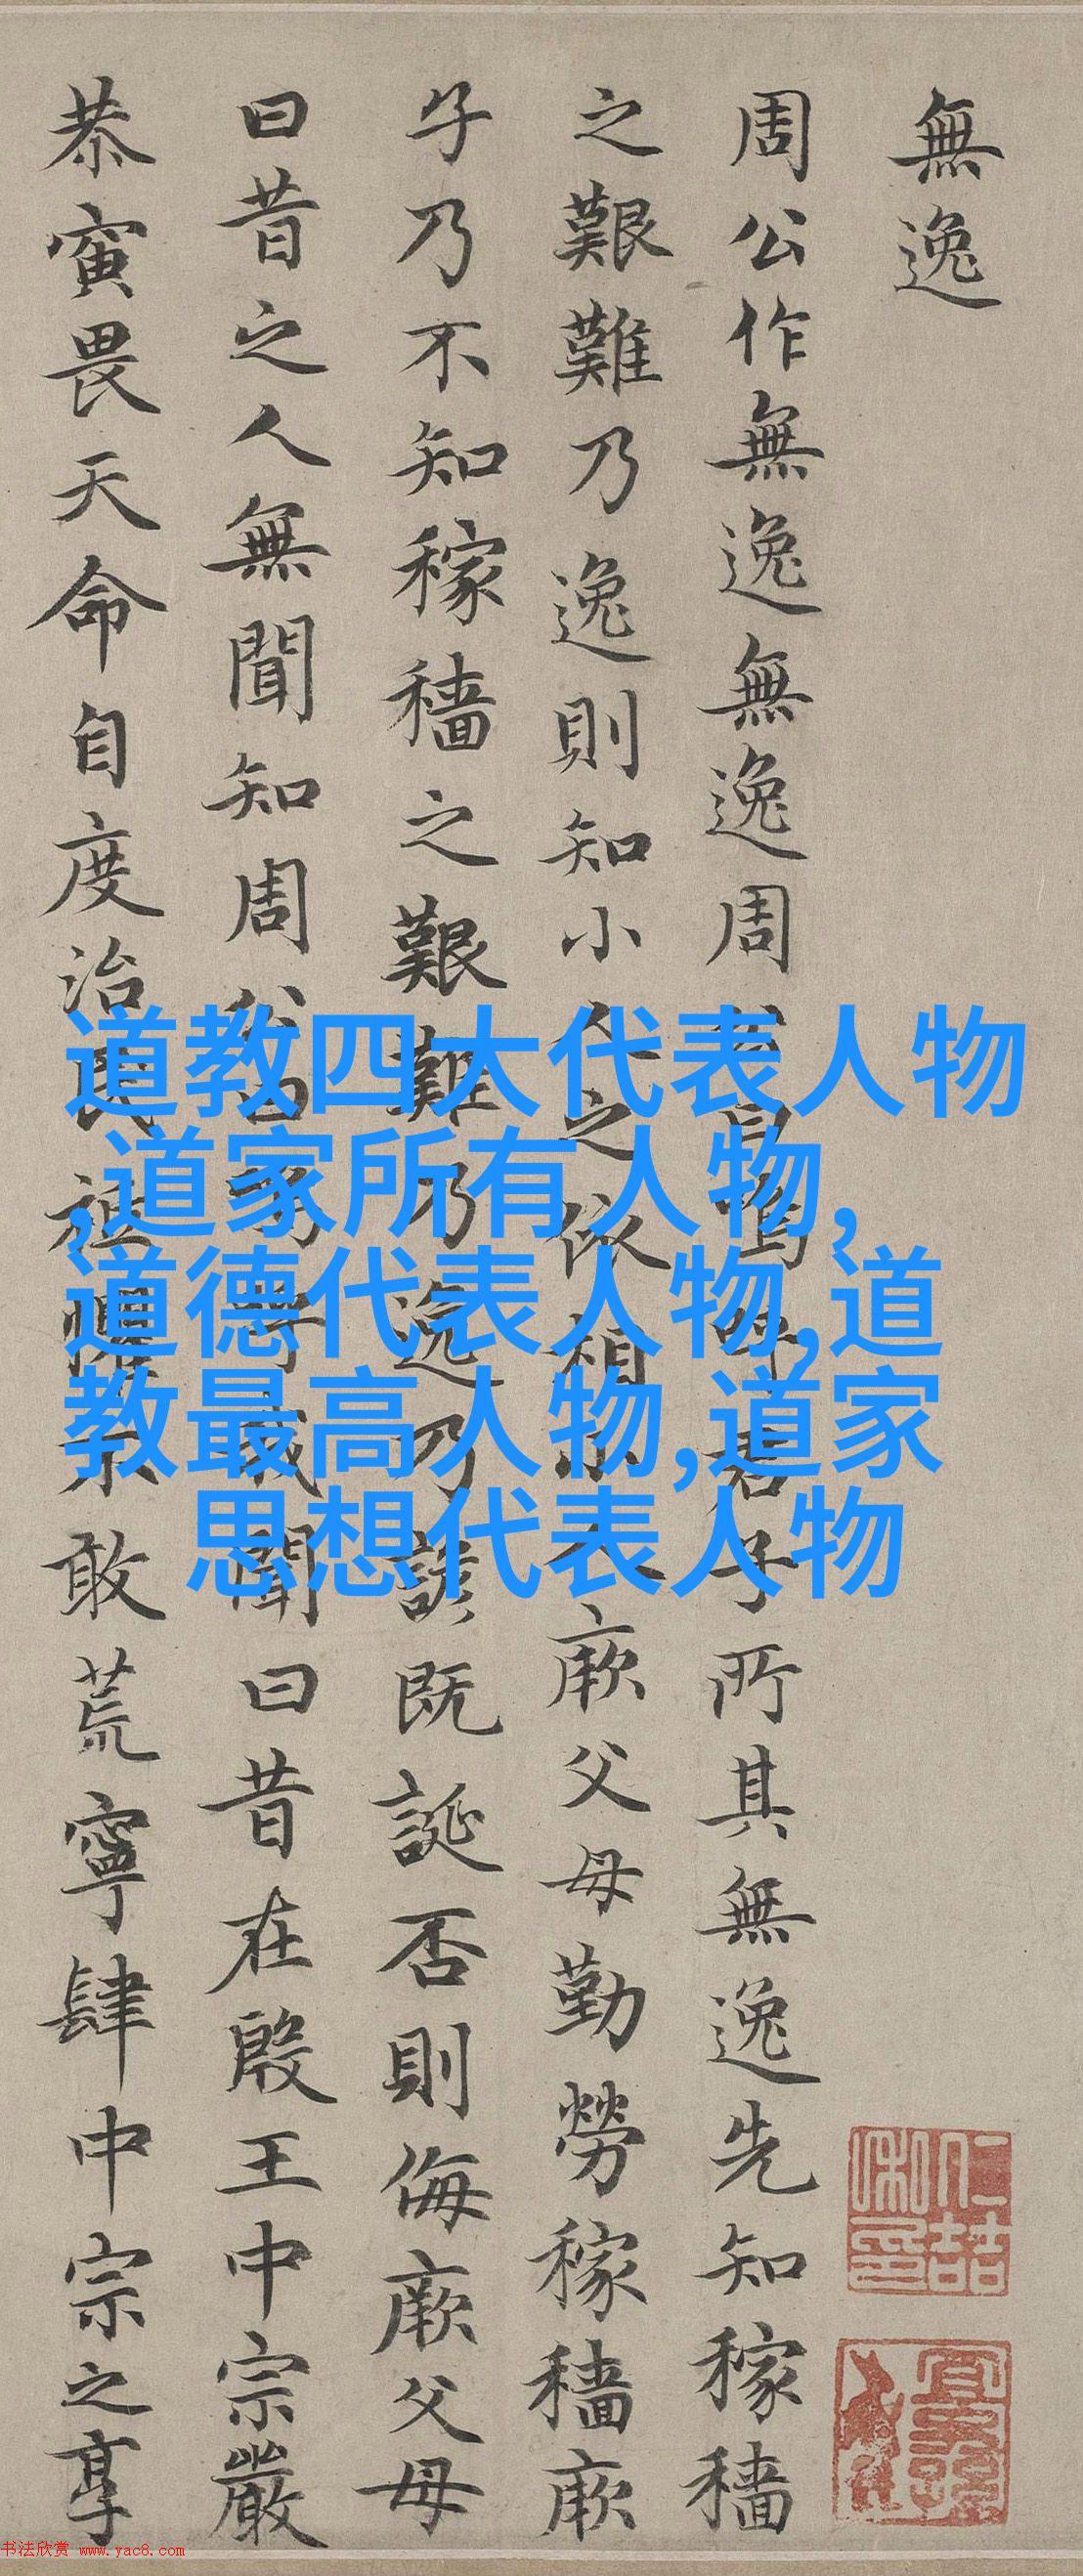 無逸
周公作無逸無逸周公曰嗚呼君子所其無逸先知稼穡
之艱難乃逸則知小人之依相小人厥父母勤勞稼穡厥
子乃不知稼穡之艱難乃逸乃諺既誕否則侮厥父母
曰昔之人無聞知周公曰嗚呼我聞曰昔在殷王中宗嚴
恭寅畏天命自度治民祗懼不敢荒寧肆中宗之享
道教四大代表人物
,道家所有人物,
道德代表人物,道
教最高人物,道家
思想代表人物
书法欣赏 www.yac8.com